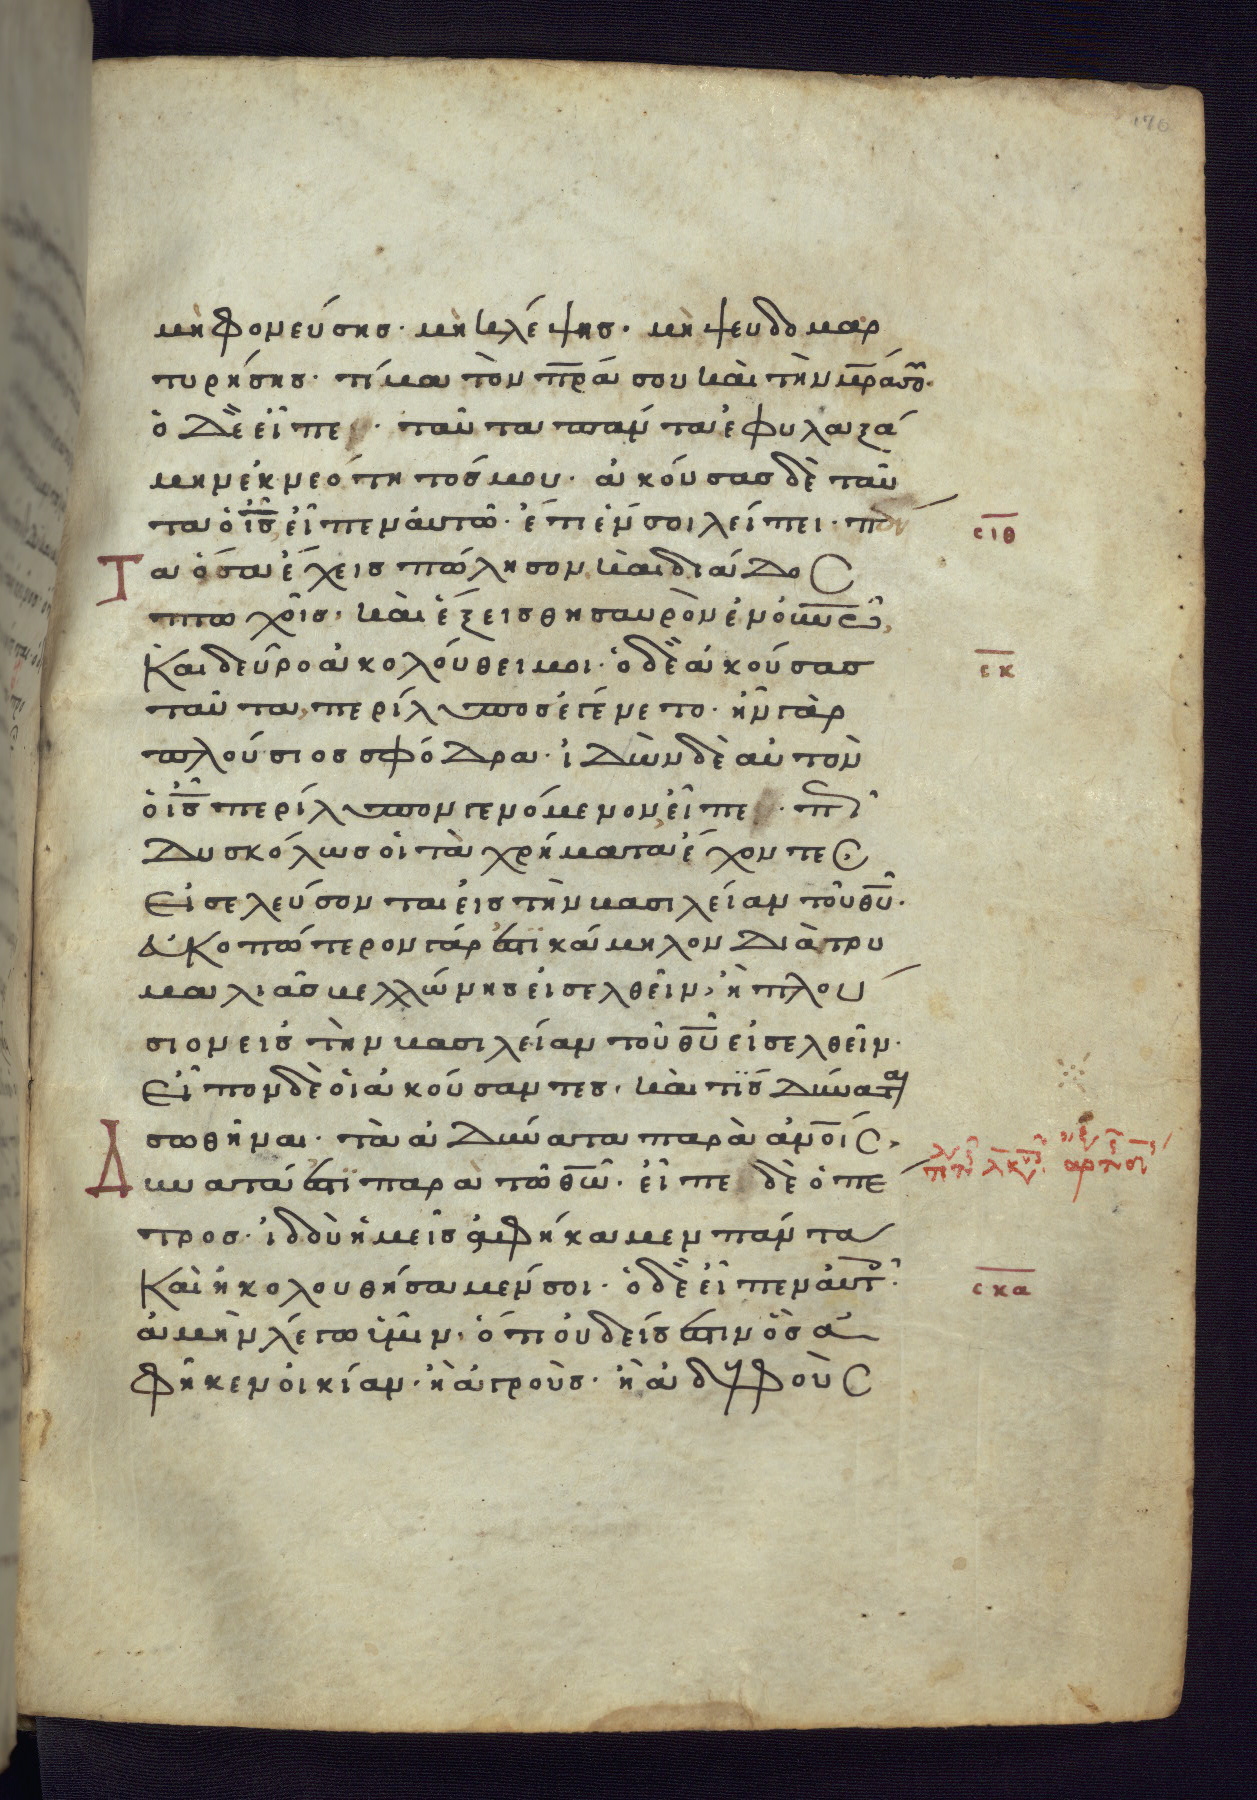 μὴ φονεύσης· μὴ κλέψης· μὴ ψευδομαρ
τυρήσης· τίμα τὸν πρ̅α σου καὶ τὴν μρ̅α σου·
ὁ δὲ εἶπε· ταῦτα πάντα ἐφυλαξά
μην ἐκ νεότητός μου· ἀκούσας δὲ ταῦ
τα ὁ ις̅ εἶπεν αὐτῶ· ἔτι ἕν σοι λείπει· πάν
τα ὅσα ἔχεις πώλησον καὶ διάδος
πτωχοῖς· καὶ ἕξεις θησαυρὸν ἐν ουνω̅,
Καὶ δεῦρο ἀκολούθει μοι· ὁ δὲ ἀκούσας
ταῦτα, περίλυπος ἐγένετο· ἦν γὰρ
πλούσιος σφόδρα· ἰδὼν δὲ αὐτὸν
ὁ ις̅ περίλυπον γενόμενον εἶπε· πῶς
Δυσκόλως οἱ τὰ χρήματα ἔχοντες
Εἰσελεύσονται εἰς τὴν βασιλείαν τοῦ θυ̅·
εὐκοπώτερον γάρ ἐστι κάμηλον διὰ τρυ
μαλιᾶς βελλώνης εἰσελθεῖν, ἢ πλού
σιον εἰς τὴν βασιλείαν τοῦ θυ̅ εἰσελθεῖν·
Εἶπον δὲ οἱ ἀκούσαντες· καὶ τίς δύναται
σωθῆναι· τὰ ἀδύνατα παρὰ ανοις,
Δυνατά ἐστι παρὰ τῶ θω̅· εἶπε δὲ ὁ πέ
τρος· ἰδοὺ ἡμεῖς ἀφήκαμεν πάντα
Καὶ ἠκολουθήσαμέν σοι· ὁ δὲ εἶπεν αὐτοῖς·
ἀμὴν λέγω ὑμῖν, ὅτι οὐδείς ἐστιν ὃς ἀ
φῆκεν οἰκίαν· ἢ ἀγροὺς· ἢ ἀδελφοὺς
σιθ
σκ
σκα
176